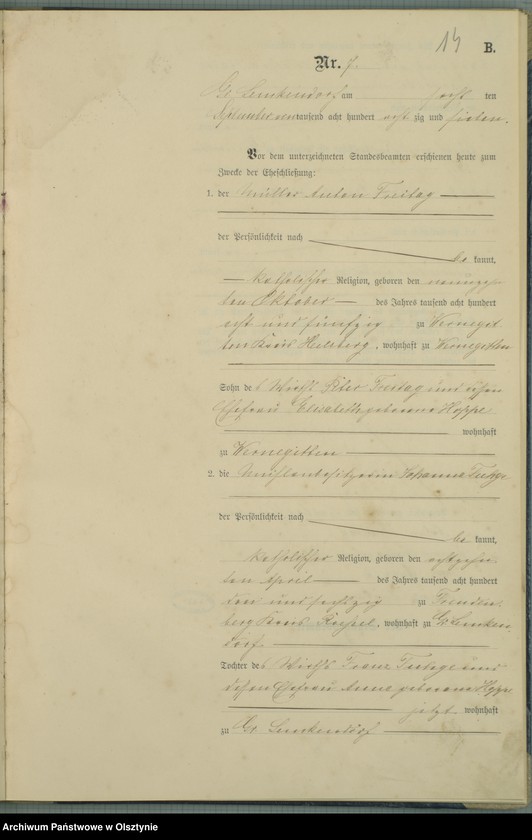 14
B.
Nr. 7.
Gr. Lemkendorf am ten
September ein tausend acht hundert acht zig und sieben.
Vor dem unterzeichneten Standesbeamten erschienen heute zum
Zwecke der Eheschließung:
1. der Müller Anton Freitag
der Persönlichkeit nach
be kannt,
katholischer Religion, geboren den neunzehn-
ten Oktober des Jahres tausend acht hundert
acht und fünfzig zu Wernegit-
ten Kreis Heilsberg, wohnhaft zu Wernegitten
Sohn des Wirths Peter Freitag und
Ehefrau Elisabeth geborene Hoppe
wohnhaft
zu Wernegitten
2. die Johanna
der Persönlichkeit nach
be kannt,
katholischer Religion, geboren den achtzehn-
ten April des Jahres tausend acht hundert
und sechszig zu Freuden-
berg Kreis Roessel, wohnhaft zu Gr. Lemken-
dorf.
Tochter des Wirths Franz und
Ehefrau Anna geborene Hoppe
jetzt wohnhaft
zu Gr. Lemkendorf
Archiwum Państwowe w Olsztynie